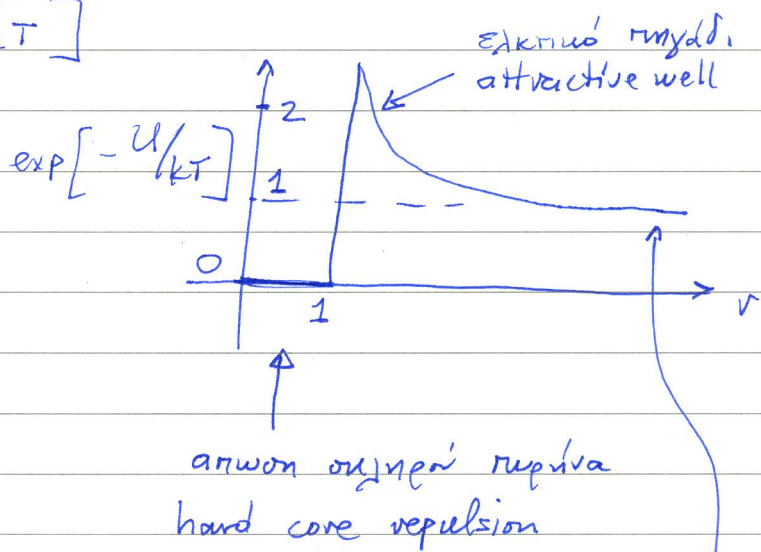 T ]
ελκτικό πηγάδι
attractive well
2
exp[-U/kT]
1
0
1
r
απωση σκληρού πυρήνα
hard core repulsion